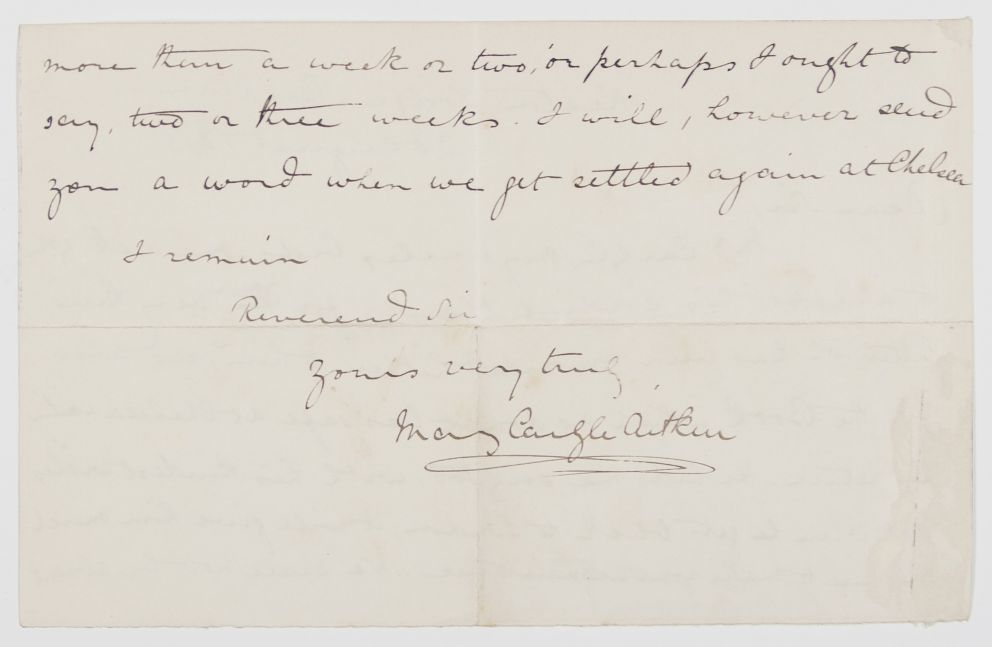 more than a week or two, or perhaps I ought to
say, two or three weeks. I will, however send
you a word when we get settled again at Chelsea
I remain
Reverend Sir
yours very truly,
Mary Carlyle Aitken